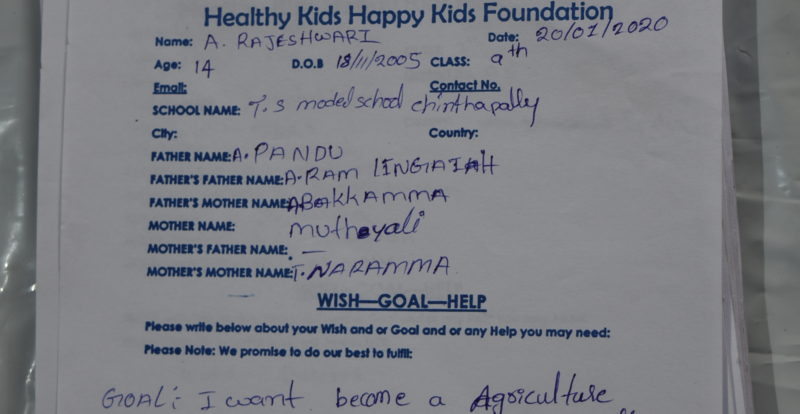 Healthy Kids Happy Kids Foundation
Name: A. RAJESHWARI Date: 20/01/2020
Age: 14 D.O.B 18/11/2005 CLASS: 9th
Email: Contact No.
SCHOOL NAME: T.S model school chinthapally
City: Country:
FATHER NAME: A. PANDU
FATHER'S FATHER NAME: A. RAM LINGIAIAH
FATHER'S MOTHER NAME: A BAKKAMMA
MOTHER NAME: mutheyali
MOTHER'S FATHER NAME: —
MOTHER'S MOTHER NAME: T. NARAMMA
WISH—GOAL—HELP
Please write below about your Wish and or Goal and or any Help you may need:
Please Note: We promise to do our best to fulfil:
GOAL: I want become a Agriculture